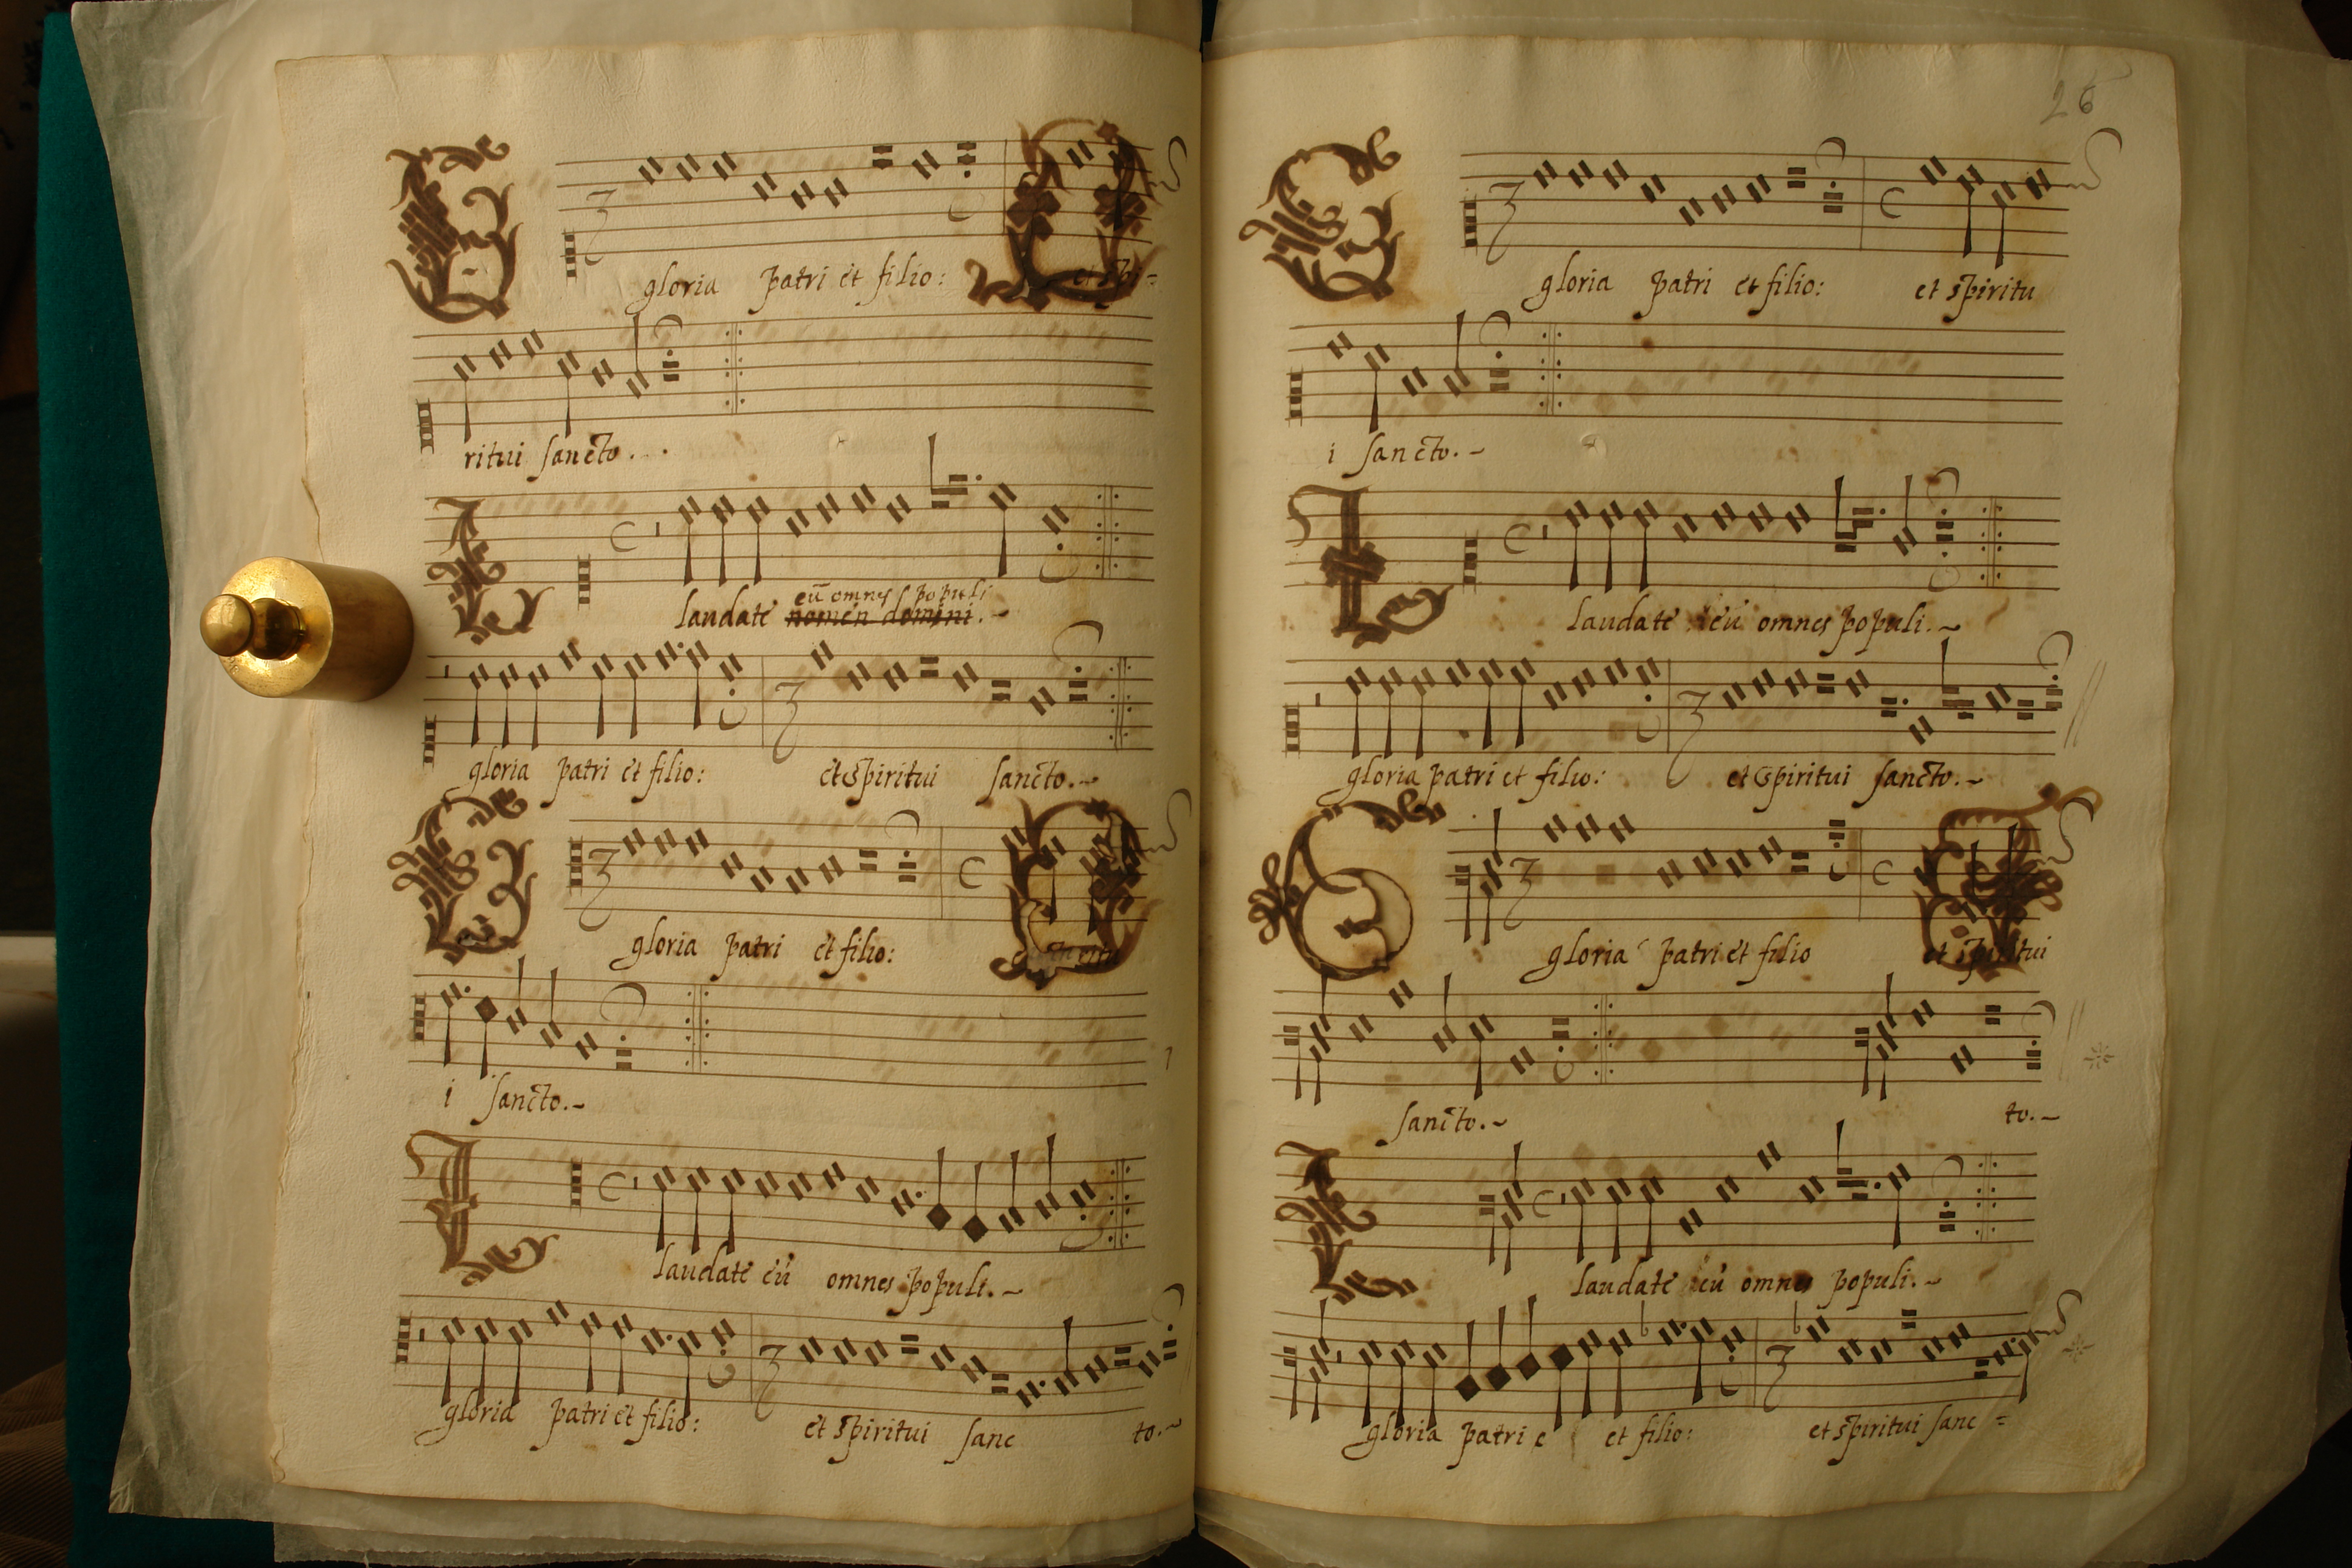 gloria patri et filio: et spi=
ritui sancto.
eū omnes populi
laudate nomen domini.
gloria patri et filio: et spiritui sancto.
gloria patri et filio:
i sancto.
laudate eū omnes populi.
gloria patri et filio: et spiritui sanc to.
26
gloria patri et filio: et spiritu
i sancto.
laudate eū omnes populi.
gloria patri et filio: et spiritui sancto.
gloria patri et filio et spiritui
sancto. to.
laudate eū omnes populi.
gloria patri e et filio: et spiritui sanc=